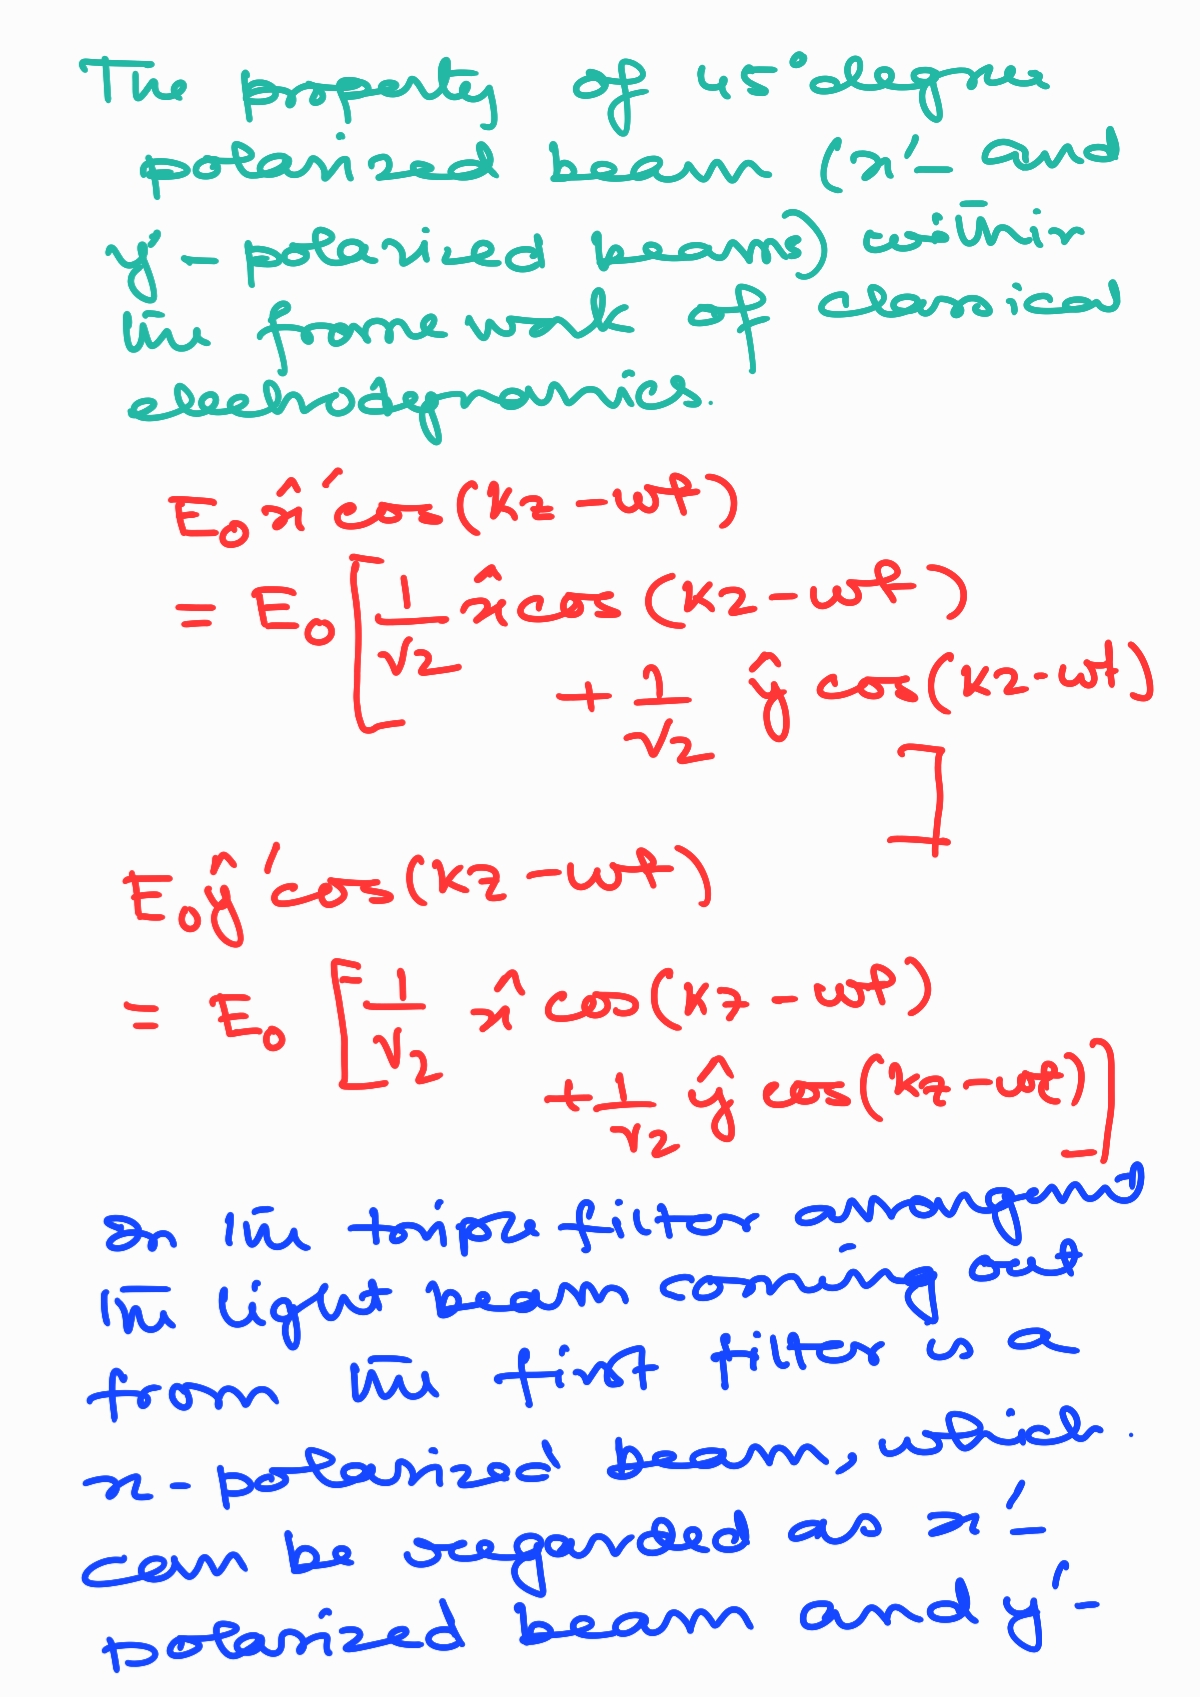 The property of 45° degree
polarized beam (x'- and
y'- polarized beams) within
the framework of classical
electrodynamics.
E₀ x̂' cos(kz - ωt)
= E₀ [ 1/√2 x̂ cos (kz - ωt)
+ 1/√2 ŷ cos(kz - ωt)
]
E₀ ŷ' cos(kz - ωt)
= E₀ [- 1/√2 x̂ cos(kz - ωt)
+ 1/√2 ŷ cos(kz - ωt)]
In the triple filter arrangement
the light beam coming out
from the first filter is a
x - polarized beam, which
can be regarded as x'-
polarized beam and y'-